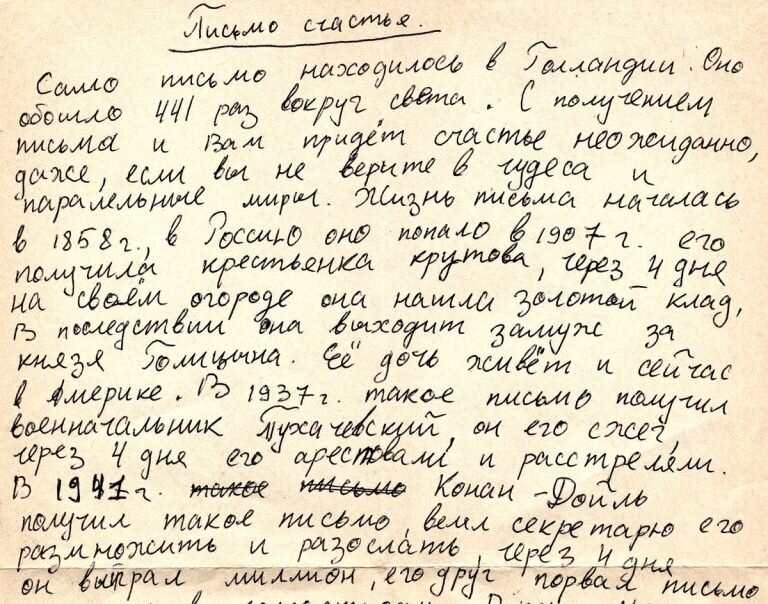 Письмо счастья.
Само письмо находилось в Голландии. Оно
обошло 441 раз вокруг света. С получением
письма и Вам придёт счастье неожиданно,
даже, если вы не верите в чудеса и
паралельные миры. Жизнь письма началась
в 1858 г., в Россию оно попало в 1907 г. его
получила крестьенка крутова, через 4 дня
на своём огороде она нашла золотой клад,
В последствии она выходит замуж за
князя Голицына. Её дочь живёт и сейчас
в Америке. В 1937 г. такое письмо получил
военначальник Тухачевский, он его сжег,
через 4 дня его арестовали и расстреляли.
В 1941 г. такое письмо Конан-Дойль
получил такое письмо, велил секретарю его
размножить и разослать, через 4 дня
он выграл миллион, его друг порвал письмо